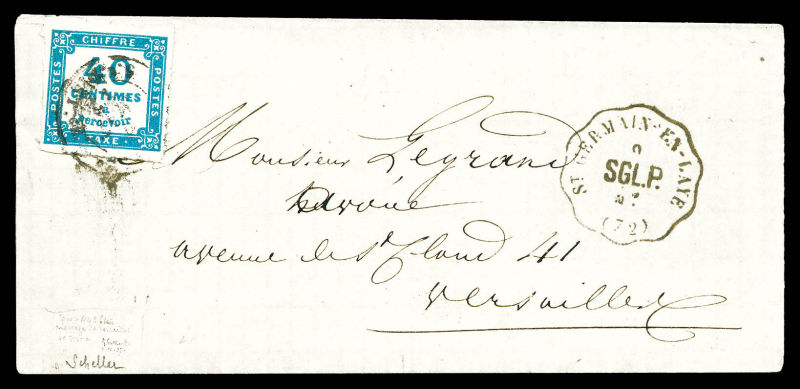 CHIFFRE
POSTES
40
CENTIMES
à
percevoir
POSTES
TAXE
Monsieur Legrand
avoué
avenue de St Cloud 41
Versailles
ST GERMAIN-EN-LAYE
SGL.P.
(72)
Scheller